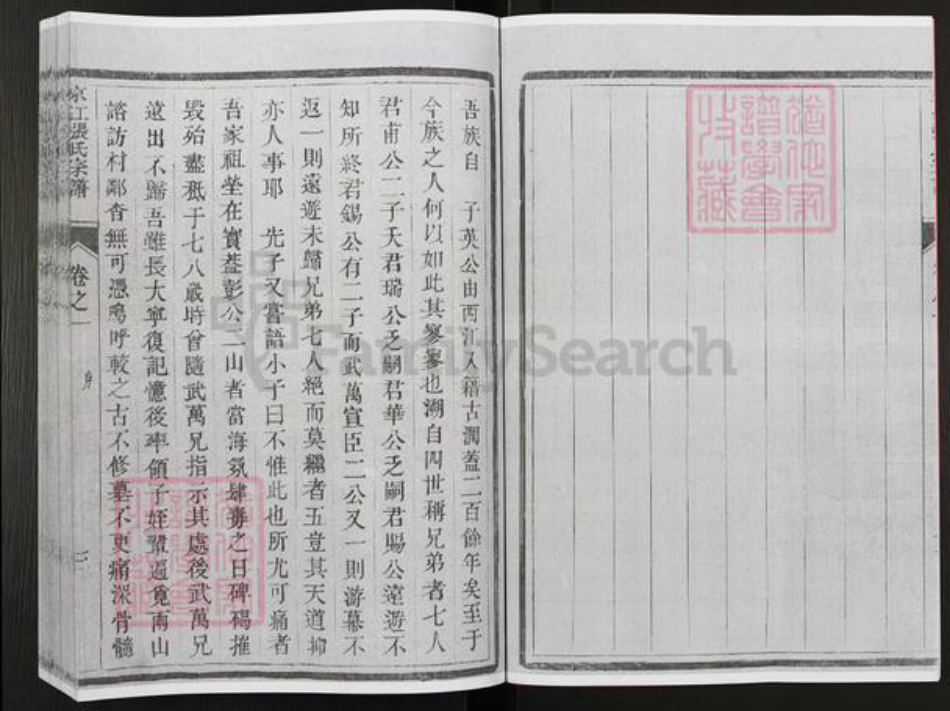 吾族自　子英公由西江入籍古潤蓋二百餘年矣至于
今族之人何以如此其寥寥也溯自四世稱兄弟者七人
君甫公二子夭君瑞公乏嗣君華公乏嗣君賜公遠遊不
知所終君錫公有二子而武萬宣臣二公又一則游幕不
返一則遠遊未歸兄弟七人絕而莫繼者五豈其天道抑
亦人事耶　先子又嘗語小子曰不惟此也所尤可痛者
吾家祖塋在寶蓋彭公二山者當海氛肆毒之日碑碣摧
毀殆盡秪于七八歲時曾隨武萬兄指示其處後武萬兄
遠出不歸吾雖長大寧復記憶後率領子姪輩遍覓兩山
諮訪村鄰杳無可憑嗚呼較之古不修墓不更痛深骨髓
京江張氏宗譜
卷之一
序
譜學會
收藏
FamilySearch